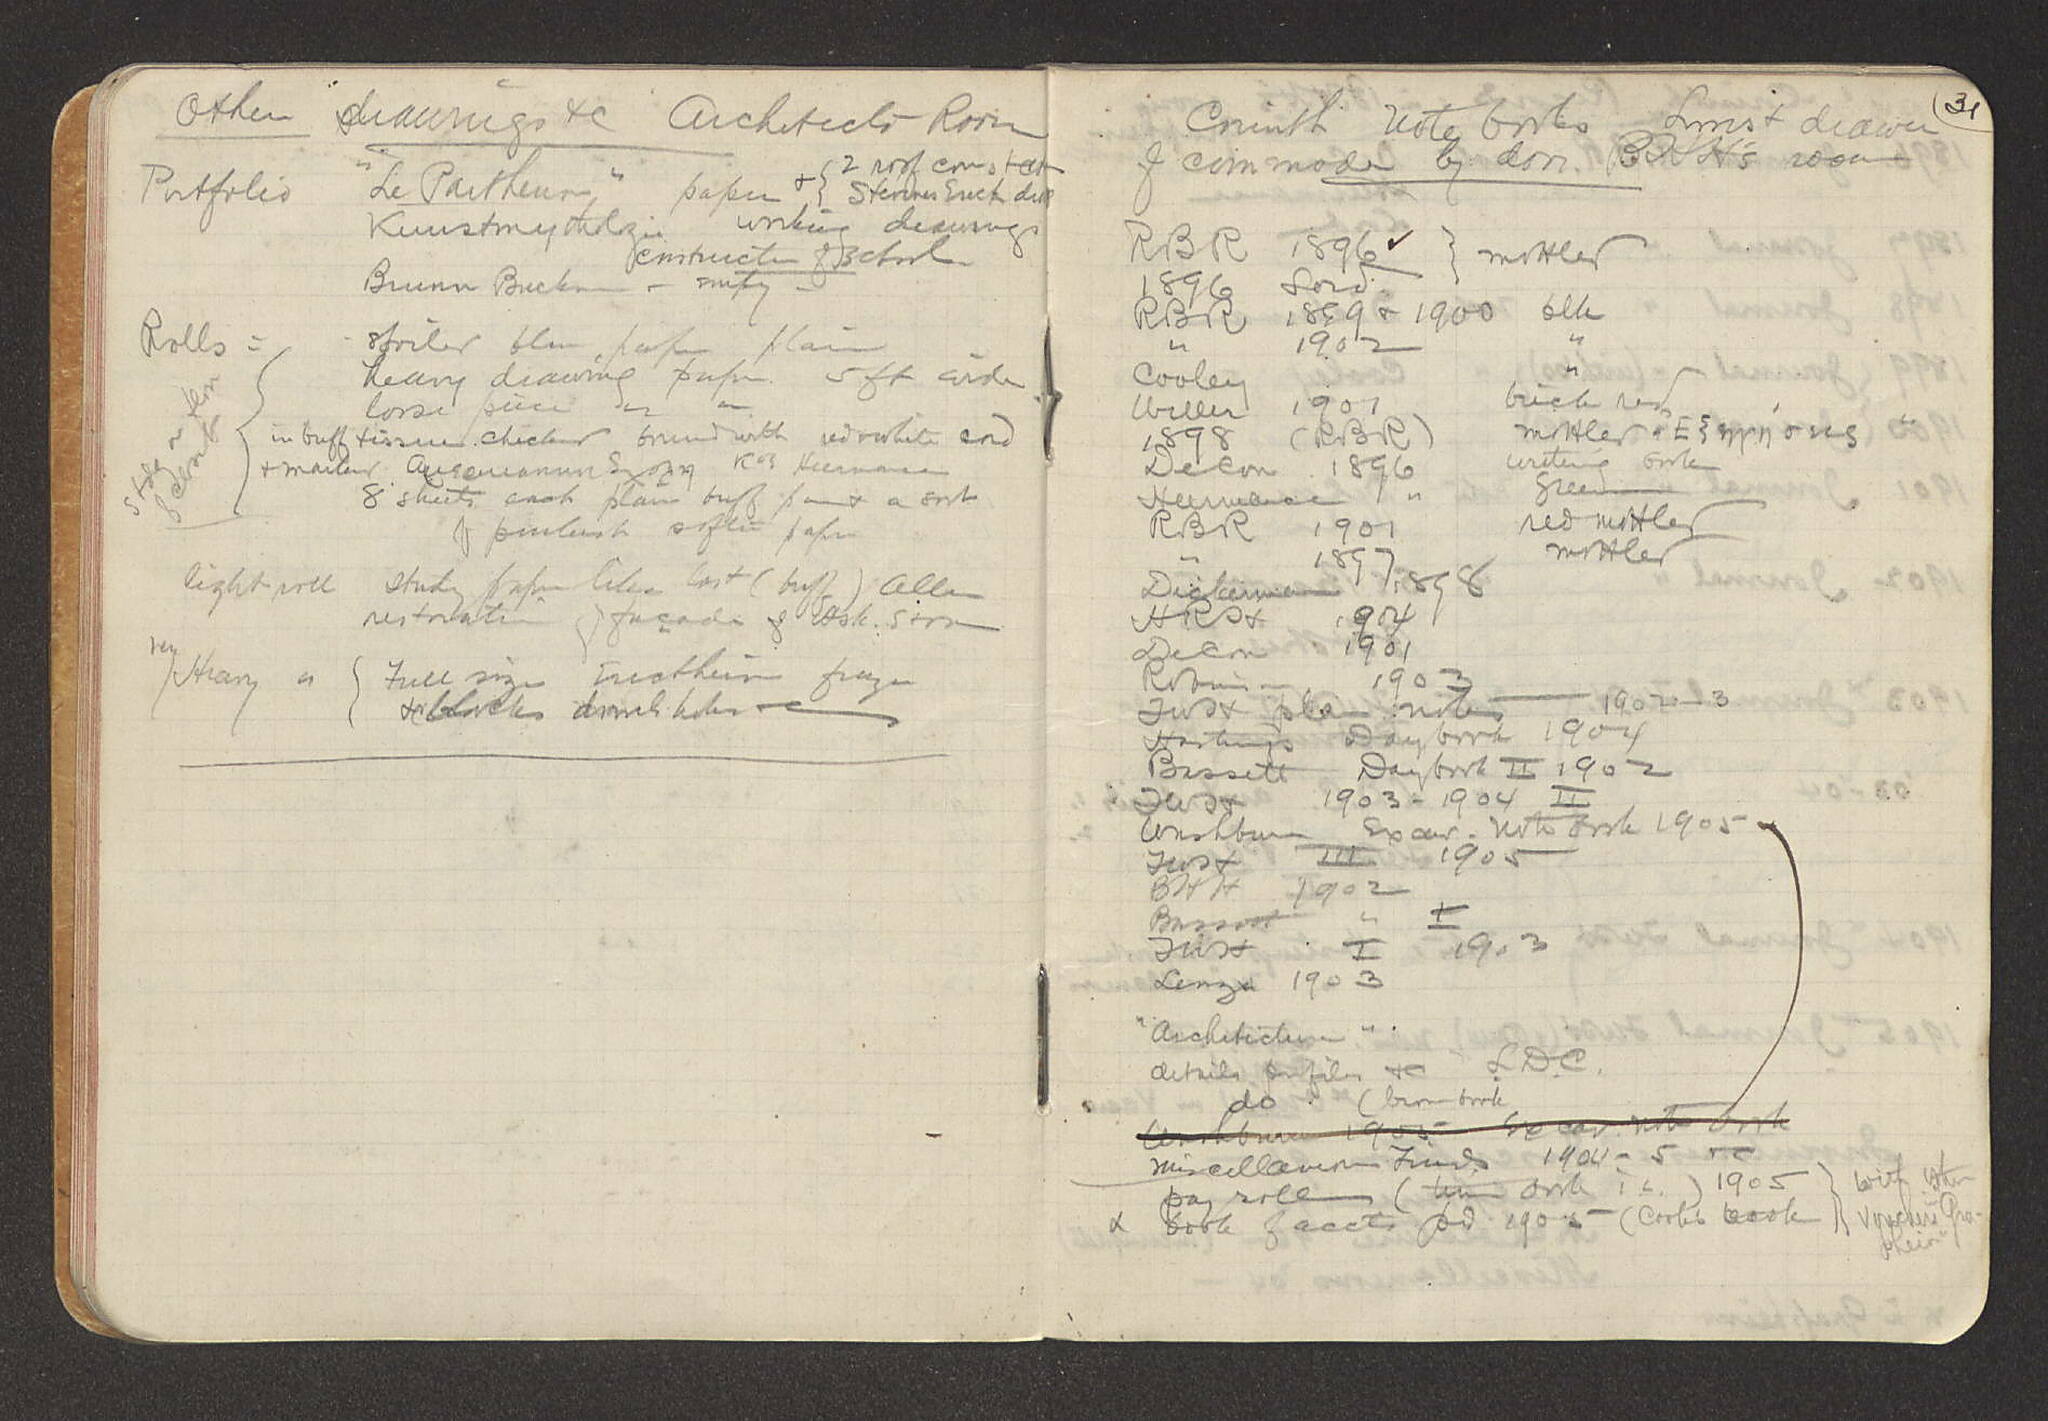 Other drawings &c Architects Room
Portfolio "Le Parthenon" paper & { 2 roof const
Stevens Erech
Kunstmythologie working drawings
construction of School
Brunn Bruckmann - empty -
Rolls = spoiled blue paper plain
heavy drawing paper. 5 ft wide
loose piece " "
in buff tissue checked bound with red & white cord
& marked Κος Heermance
8 sheets each plain buff paper & a sort
of pinkish softer paper
light roll study paper like last (buff) Allen
restoration façade of Ask. Stoa
very Heavy " { Full size Erectheion frieze
& blocks dowel holes &c
31
Corinth Note books Lowest drawer
of commode by door. BHH's room
RBR 1896 ✓ } mottled
1896 Lord.
RBR 1899 & 1900 blk
" 1902 "
Cooley "
Weller 1901 brick red
1898 (RBR) mottled "
DeCou 1896 writing book
Heermance " green
RBR 1901 red mottled
" 1897 mottled
Dickerman 1898
HRH 1904
DeCou 1901
Robinson 1903
plan notes — 1902-3
Hastings Day book 1904
Bassett Day book II 1902
1903 - 1904 II
Washburn Excav. Note book 1905
III 1905
BHH 1902
Bassett " I
I 1903
Lenza 1903
"Architecture"
details profiles &c
do (brown book
Washburn 1905 Excav. note book
Miscellaneous Finds 1904-5 &c
pay roll (time book) 1905 } with other
& book of accts pd 1905 (Cook's book vouchers